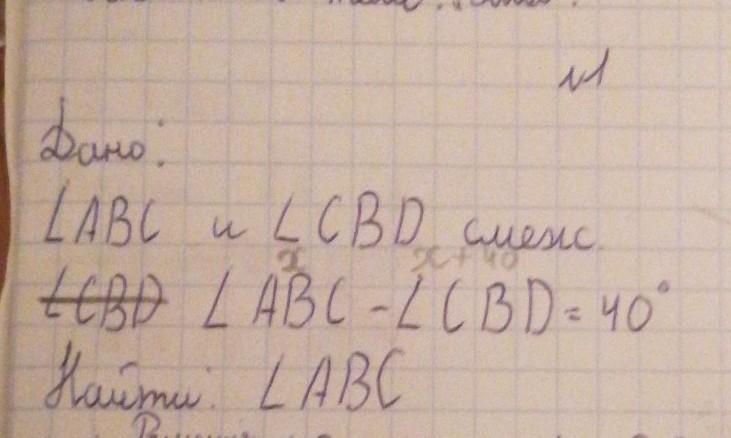 №1
Дано:
∠ABC и ∠CBD смеж.
x x+40
∠CBD ∠ABC - ∠CBD = 40°
Найти: ∠ABC